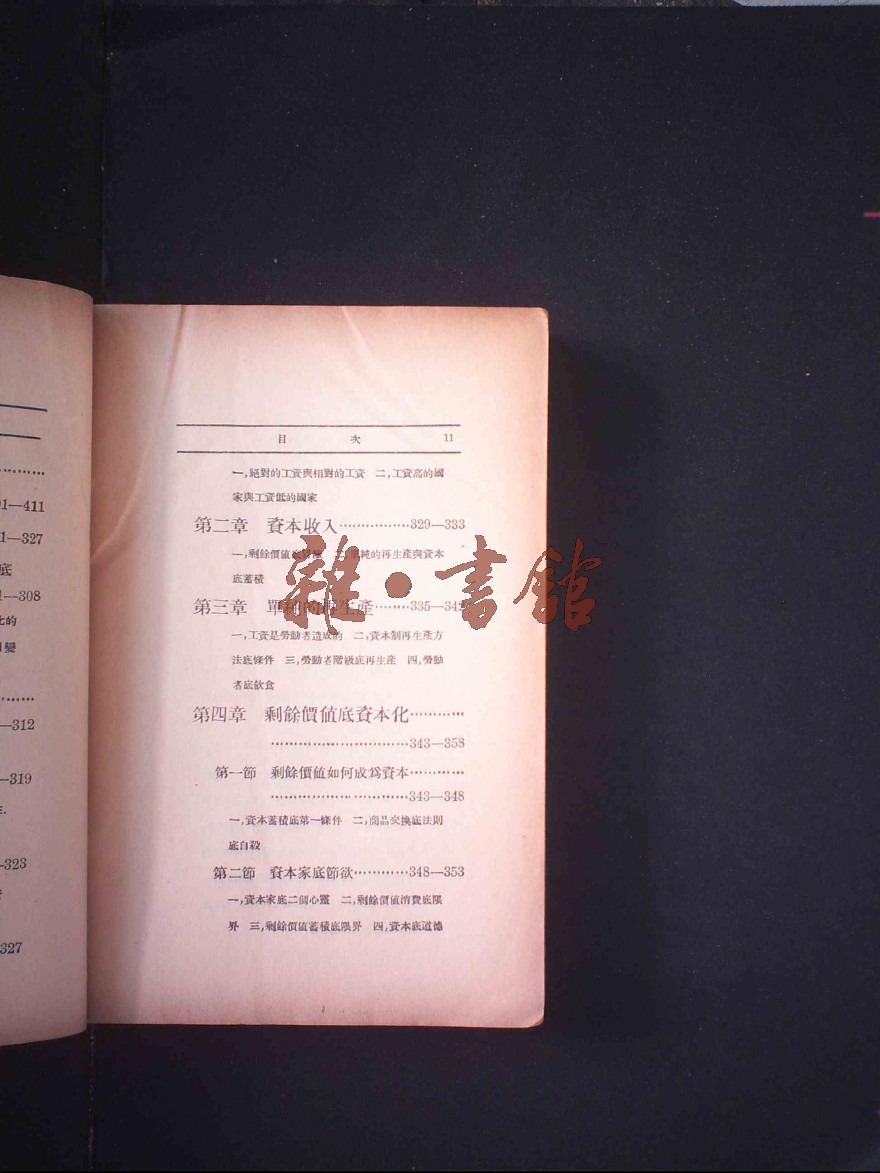 01—411
1—327
底
1—308
比的
變
—312
—319
—323
327
目 次 11
一,絕對的工資與相對的工資 二,工資高的國
家與工資低的國家
第二章 資本收入················329—333
一,剩餘價値底 二,單純的再生產與資本
底蓄積
第三章 單純的再生產········335—342
一,工資是勞動者造成的 二,資本制再生產方
法底條件 三,勞動者階級底再生產 四,勞動
者底飮食
第四章 剩餘價値底資本化············
······························343—358
第一節 剩餘價値如何成爲資本············
······························343—348
一,資本蓄積底第一條件 二,商品交換底法則
底自殺
第二節 資本家底節欲············348—353
一,資本家底二個心靈 二,剩餘價値消費底限
界 三,剩餘價値蓄積底限界 四,資本底道德
雜·書館